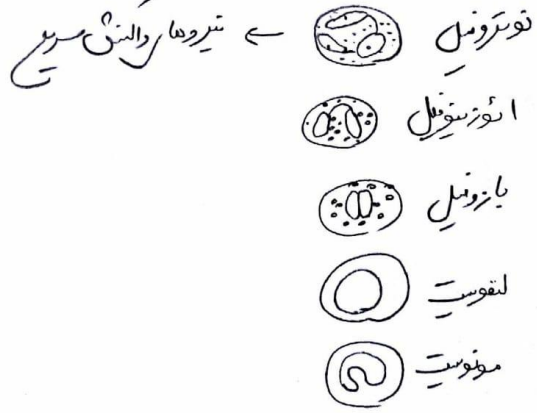 نوتروفیل ← نیروهای واکنش سریع
ائوزینوفیل
بازوفیل
لنفوسیت
مونوسیت